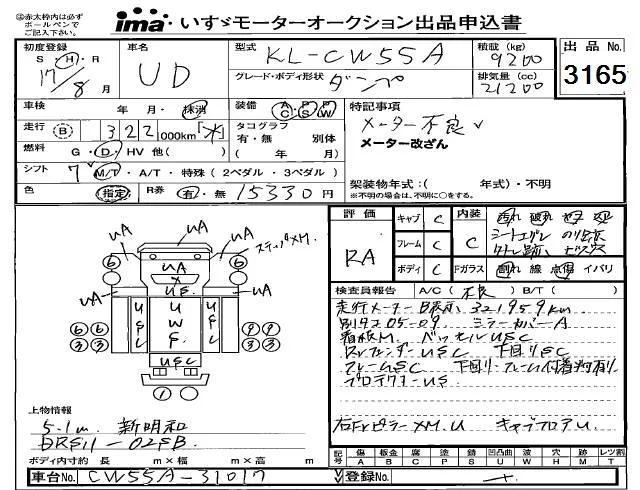 ④赤太枠内は必ず
ボールペンで
ご記入下さい。
ima いすゞモーターオークション出品申込書
初度登録 車名 型式 KL-CW55A 積載 (kg) 9200 出品 No.
S・H・R 17/8月 UD グレード・ボディ形状 ダンプ 排気量 (cc) 21200 3165
車検 年・月・抹消 装備 AC PS PW 特記事項
走行 B 322,000km「*」 タコグラフ メーター不良
有・無 別体 メーター改ざん
燃料 G・D・HV 他( ) ( 年 月)
シフト 7 M/T・A/T・特殊(2ペダル・3ペダル)
架装物年式:( 年式)・不明
色 指定 R券 有・無 15330円 ※不明の場合は、不明に○をする。
評価 キャブ C 内装 切れ 破れ
RA フレーム C C シートエグレ のり跡
ボディ C Fガラス 割れ 線 点傷 イバリ
uA uA ステップXM.
uA uA uA
US
USC UWS USC
USC
検査員報告 A/C(不良)B/T( )
走行メーターB表示 321959km
別タコ05-09 ミラーカバーA
看板M. ベッセルUSC
RrフェンダーUSC 下回りSC
フレームUSC 下回り・フレーム付着物有り
プロテクターUS
右FrピラーXM.U キャブフロアU
上物情報
5.1m 新明和
DRS11-02SB.
ボディ内寸約 長 m×幅 m×高 m
記号 傷 A 板金 B 腐 C 塗 P 錆 S 凹凸曲 U 波 W 穴 H 跡 M レツ割 T
車台No. CW55A-31017 登録No.